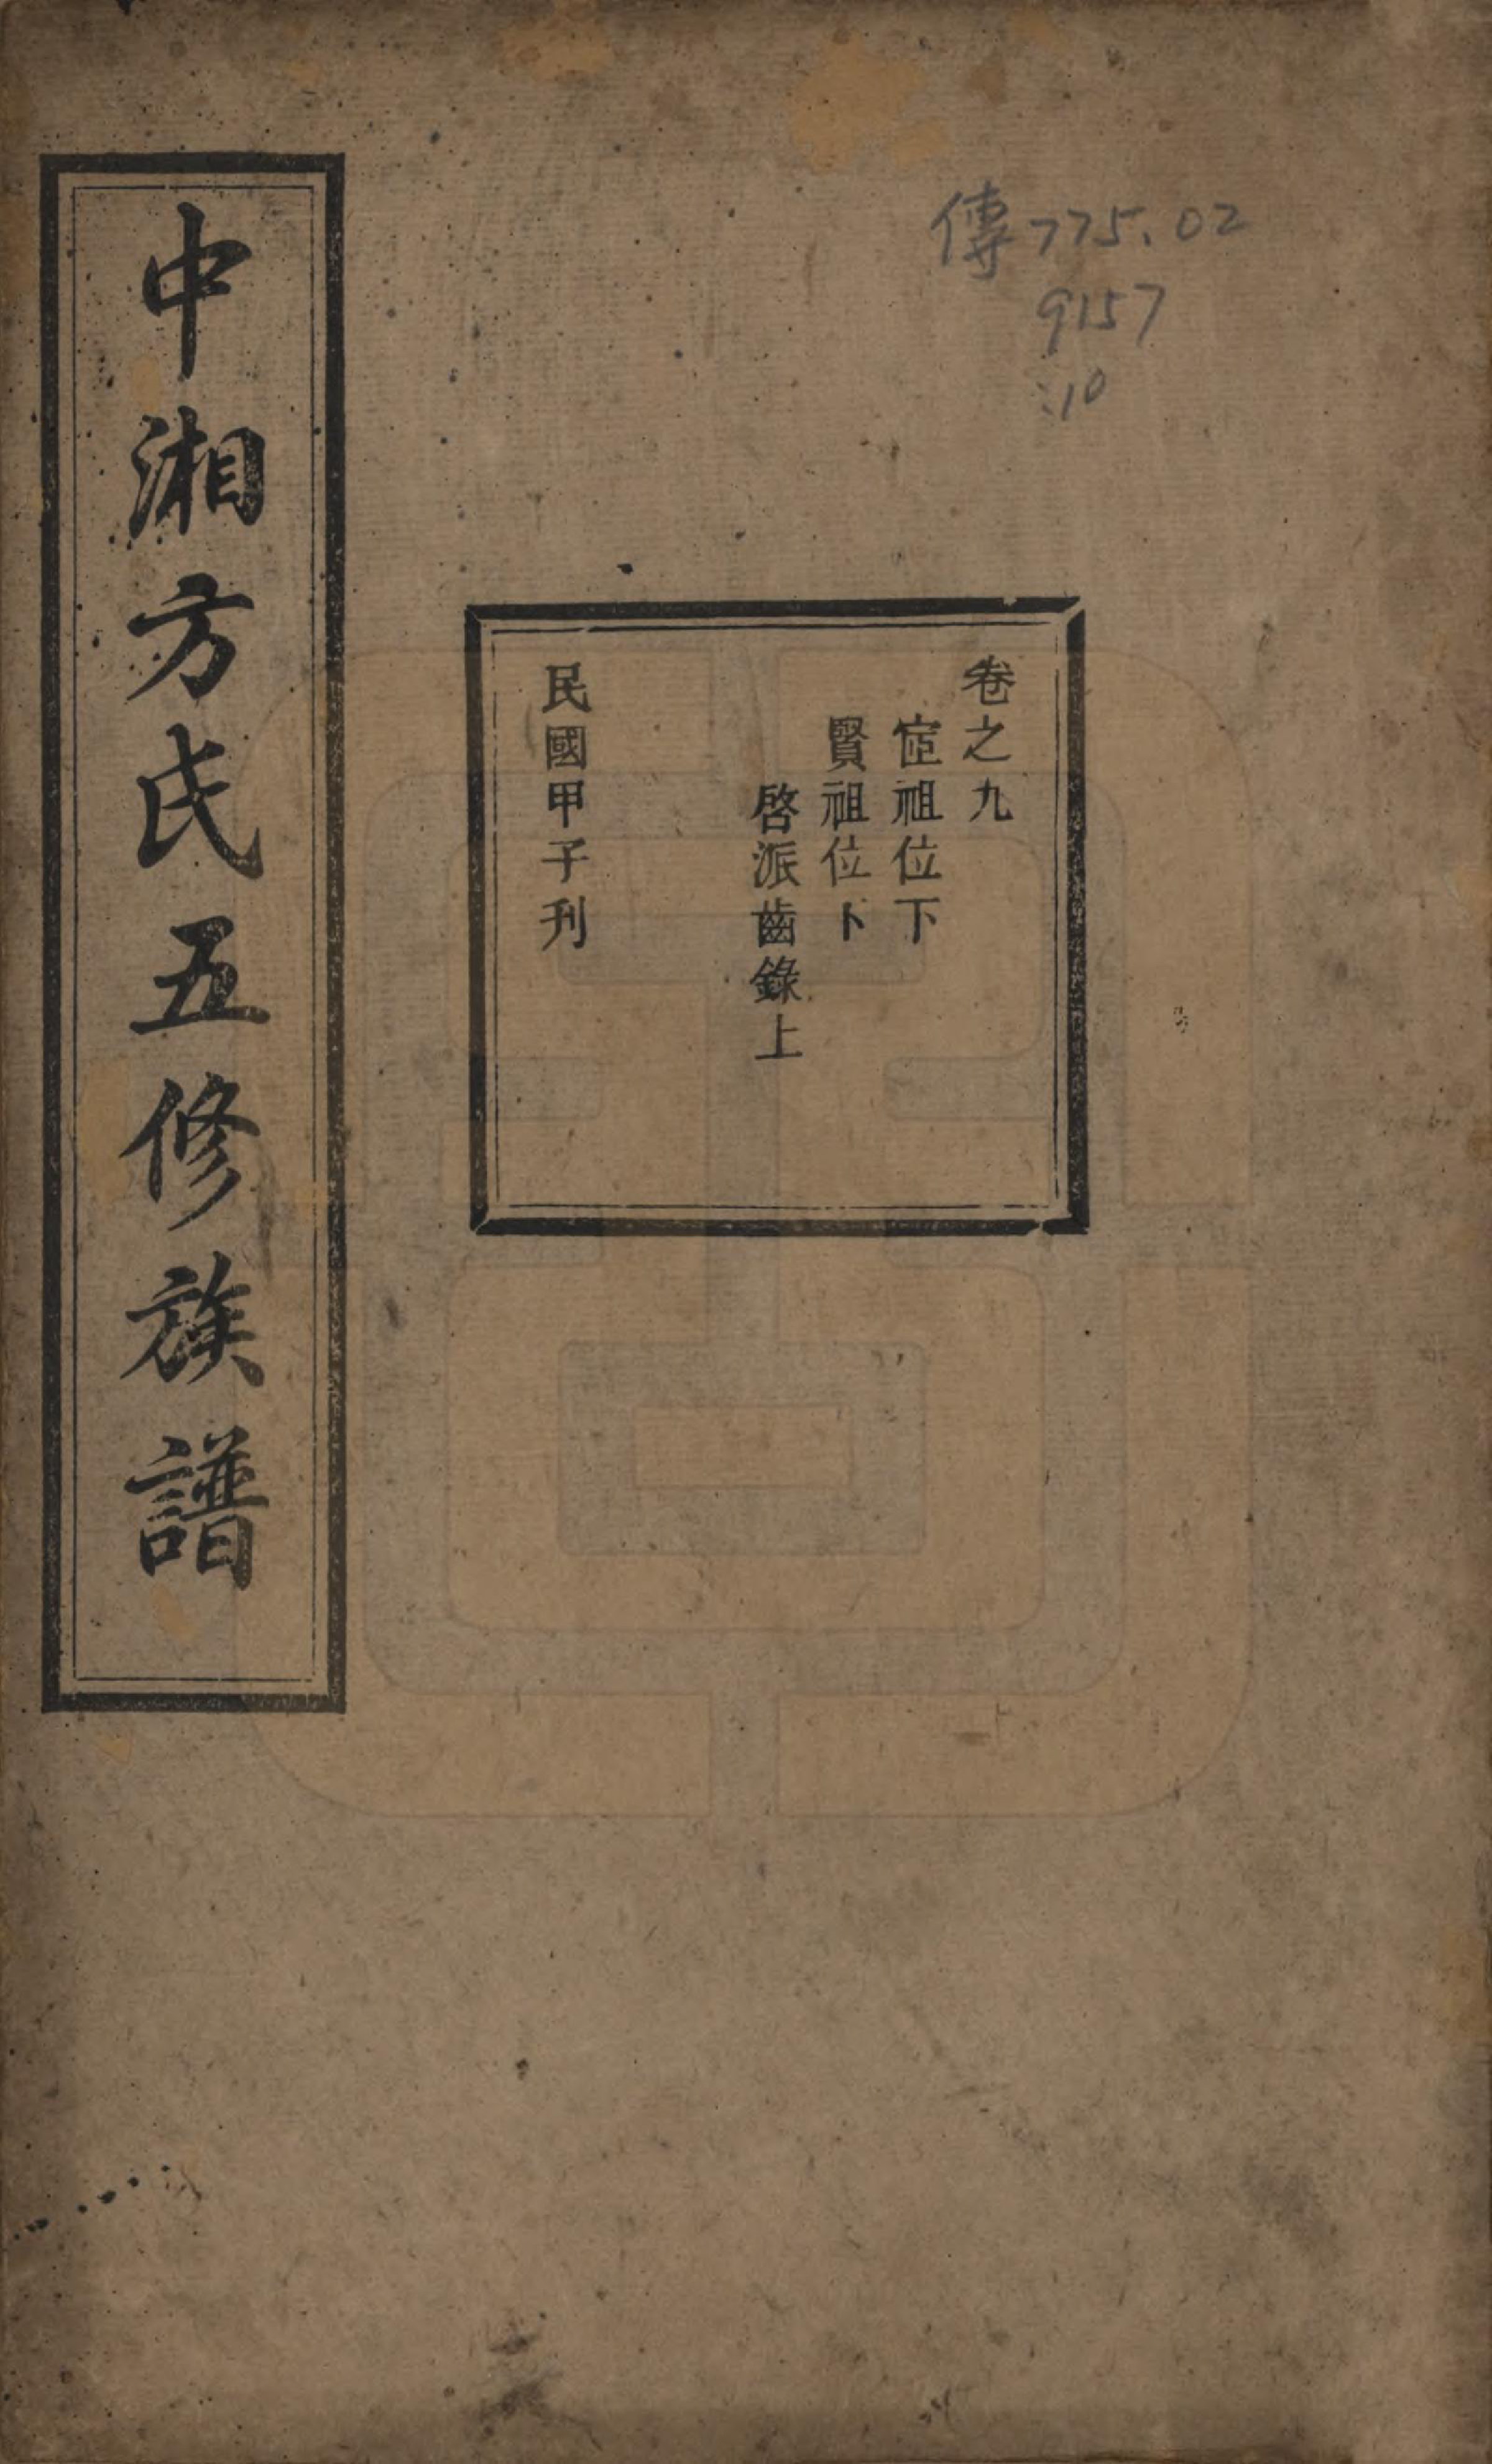 傳775.02
9157
:10
卷之九
宧祖位下
賢祖位下
啓派齒錄上
民國甲子刋
中湘方氏五修族譜